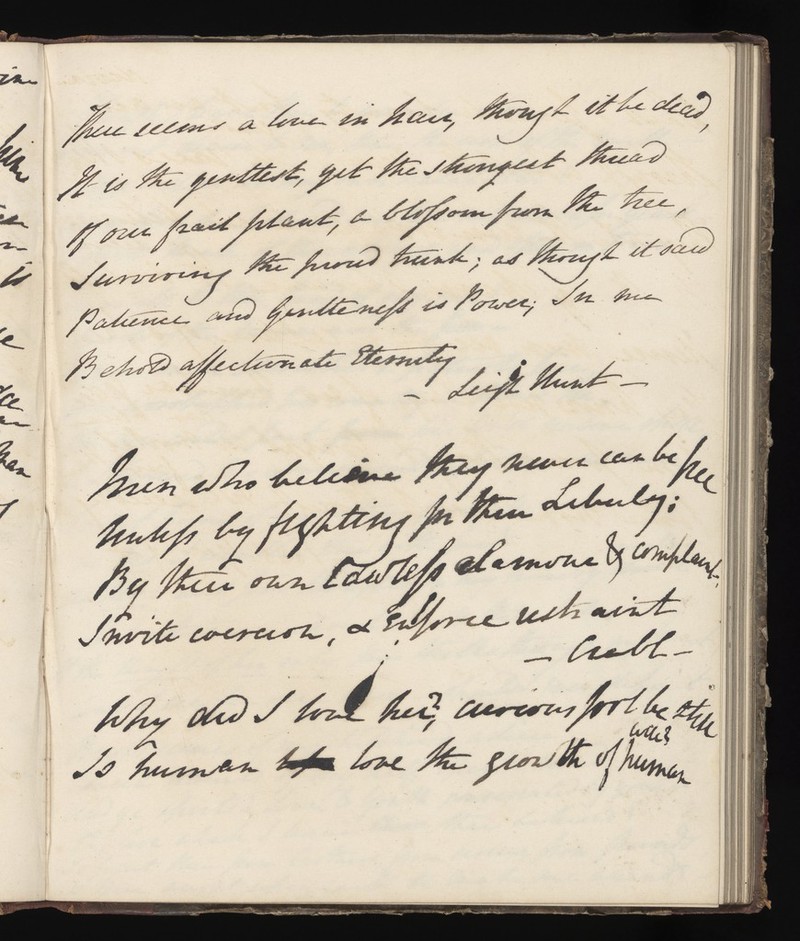 There seems a love in hair, though it be dead,
It is the gentlest, yet the strongest thread
Of our frail plant, a blossom from the tree,
Surviving the proud trunk; as though it said
Patience and Gentleness is Power; In me
Behold affectionate Eternity
– Leigh Hunt –
Men who believe they never can be free
Unless by fighting for their Liberty;
By their own Lawless clamour & complaint,
Invite coercion, & enforce restraint
– Crabb –
Why did I love her?, curious fool be still
Is human love the growth of human will?